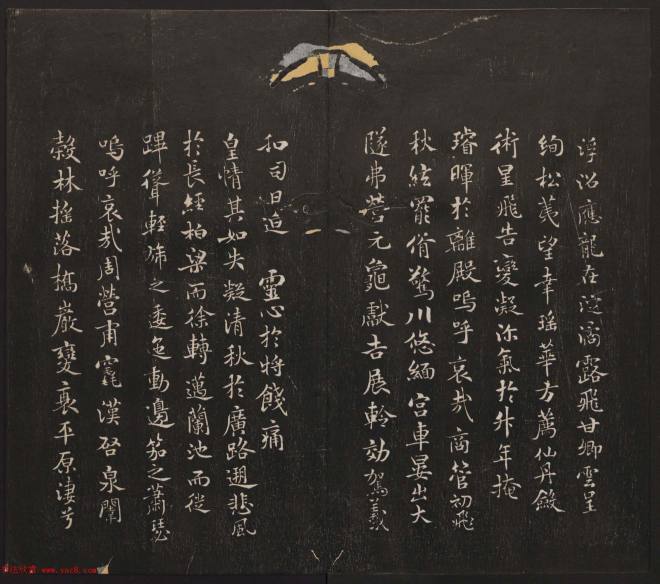 浮沼應龍在淀滴露飛甘卿雲呈
絢松荑望幸瑤華方薦仙丹斂
術星飛告變凝沴氣於升年掩
璿暉於離殿嗚呼哀哉商管初飛
秋絃罷脩驚川悠緬宮車晏出大
隧弗營元龜獻吉展軨効駕羲
和司日迫 靈心於將餞痛
皇情其如失凝清秋於廣路遡悲風
於長經柏梁而徐轉邁蘭池而從
蹕聳輕旆之逶迤動邊笳之蕭瑟
嗚呼哀哉周營甫竁漢啓泉闈
穀林搖落橋巖變衰平原淒兮
www.yac8.com